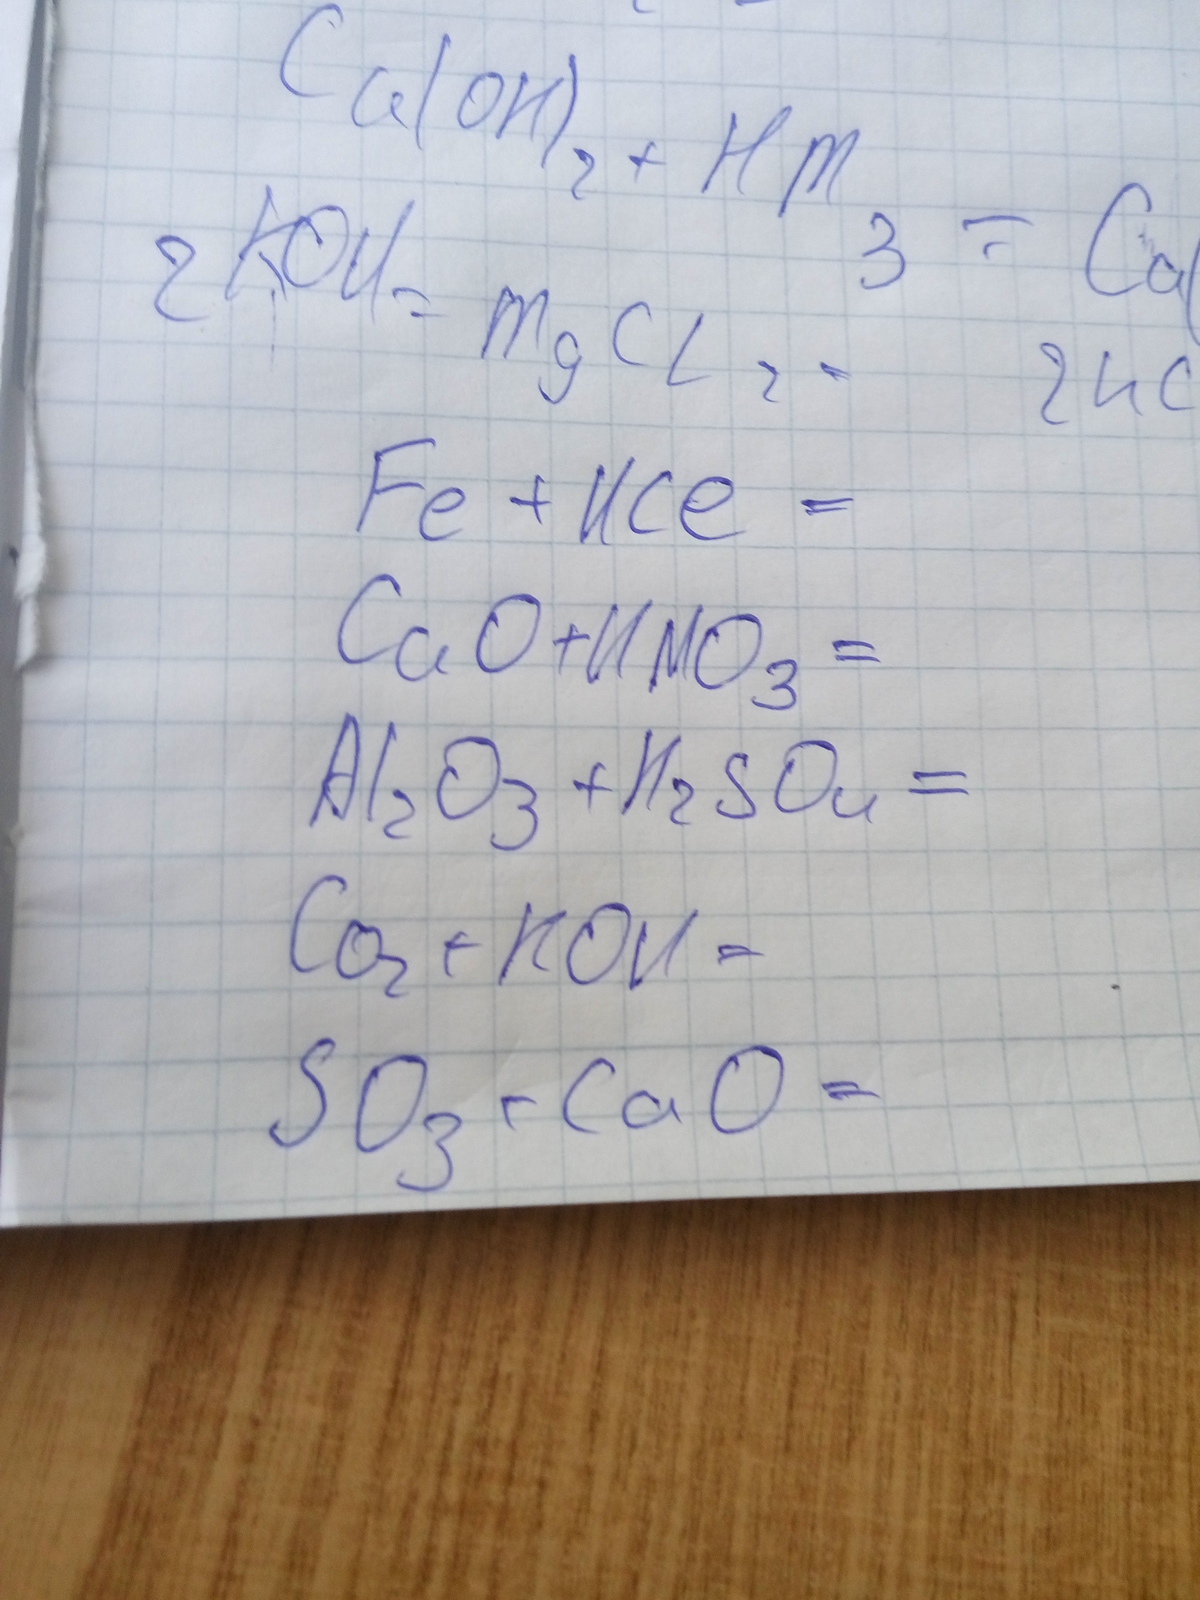 Ca(OH)₂ + Hm₃ = Ca(
2KOH = mgCl₂ - 2KC
Fe + HCe =
CaO + HNO₃ =
Al₂O₃ + H₂SO₄ =
CO₂ + KOH =
SO₃ + CaO =